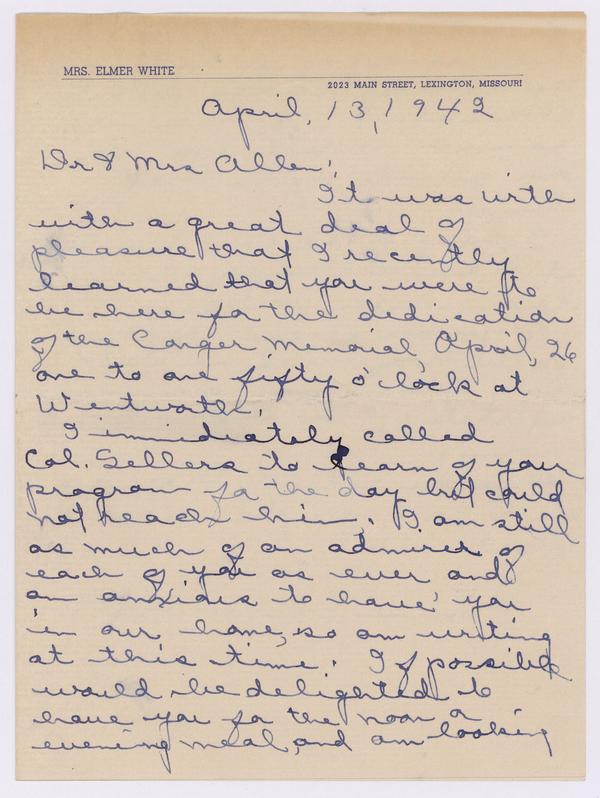 MRS. ELMER WHITE
2023 MAIN STREET, LEXINGTON, MISSOURI
April, 13, 1942
Dr & Mrs Allen:
It was with
with a great deal of
pleasure that I recently
learned that you were to
be here for the dedication
of the Conger Memorial, April, 26
one to one fifty o'clock at
Wentworth.
I immidiately called
Col. Sellers to learn of your
program for the day but could
not reach him. I am still
as much of an admirer of
each of you as ever and
am anxious to have you
in our home, so am writing
at this time. If possible
would be delighted to
have you for the noon or
evening meal, and am looking